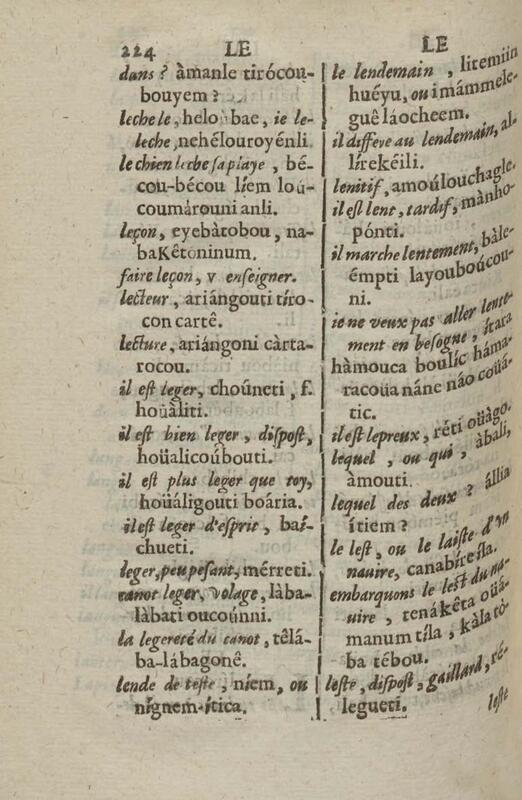 224 LE
dans ? àmanle tirócou-
bouyem ?
leche le, helou bae, ie le-
leche, nehélouroyénli.
le chien leche sa playe, bé-
cou-bécou líem loú-
coumárouni anli.
leçon, eyebàtobou, na-
baKêtoninum.
faire leçon, v enseigner.
lecteur, ariángouti tíro-
con cartê.
lecture, ariángoni càrta-
rocou.
il est leger, choúneti, f.
hoüáliti.
il est bien leger, dispost,
hoüalicoúbouti.
il est plus leger que toy,
hoüáligouti boária.
il est leger d'esprit, baí-
chueti.
leger, peu pesant, mérreti.
canot leger, volage, làba-
làbati oucoúnni.
la legereté du canot, têlá-
ba-lábagonê.
lende de teste, níem, ou
nígnem-ítica.
LE
le lendemain, litemiin
huéyu, ou imámmele-
guê láocheem.
il differe au lendemain, al-
lírekéili.
lenitif, amoúlouchagle.
il est lent, tardif, mànho-
pónti.
il marche lentement, bàle-
émpti layouboúcou-
ni.
ie ne veux pas aller lente-
ment en besogne, ítara
hàmouca boulíc háma-
racoüa náne náo coüá-
tic.
il est lepreux, réti oüàgo.
lequel, ou qui, àbali,
àmouti.
lequel des deux ? állia
ítiem ?
le lest, ou le laiste d'vn
nauire, canabíre íla.
embarquons le lest du na-
uire, tenákêta oüá-
manum tíla, kàla tò-
ba tébou.
leste, dispost, gaillard, ré-
legueti.
leste